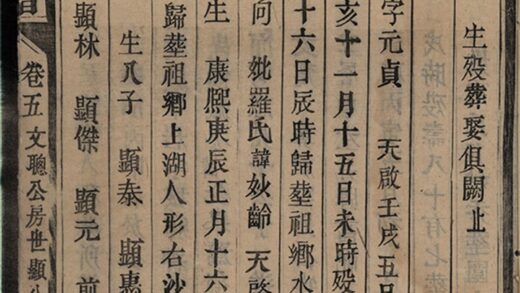 生殁葬娶俱闕止
字元貞 天啟壬戌五
亥十一月十五日未時殁
十六日辰時歸塟祖鄉水
向 妣羅氏諱妙齡 天啓
生 康熈庚辰正月十六
歸塟祖鄉上湖人形右沙
生八子 顯泰 顯惠
顯林 顯傑 顯元 前
卷五 文聰公房世顯公